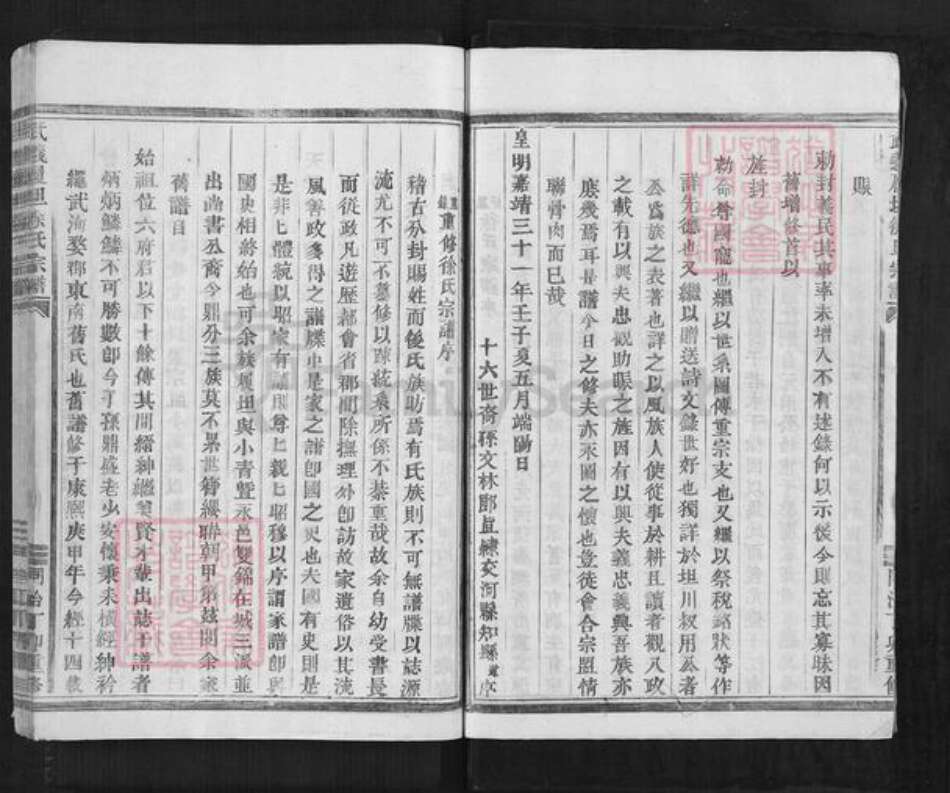 賜
勅封義民其事率未增入不有述錄何以示後今則忘其寡昧因
舊增修首以
旌封
勅命尊國寵也繼以世系圖傳重宗支也又繼以祭稅誌狀等作
詳先德也又繼以贈送詩文錄世好也獨詳於坦川叔用公者
公為族之表著也詳之以風族人使從事於耕且讀者觀入政
之載有以興夫忠觀助賑之旌因有以興夫義忠義興吾族亦
庶幾焉耳是譜今日之修夫亦永圖之懷也豈徒會合宗盟情
聯骨肉而已哉
皇明嘉靖三十一年壬子夏五月端陽日
十六世裔孫文林郎直隸交河縣知縣 序
重修徐氏宗譜序
稽古分封賜姓而後氏族昉焉有氏族則不可無譜牒以誌源
流尤不可不纂修以踈統系所係不綦重哉故余自幼受書長
而從政凡遊歷都會省郡間除撫理外卽訪故家遺俗以其流
風善政多得之譜牒中是家之譜卽國之史也夫國有史則是
是非七體統以昭家有譜則尊七親七昭穆以序謂家譜卽與
國史相終始也可余族履坦與小青暨永邑雙錦在城三派並
出尚書公裔今鼎分三族莫不累世簪纓聯朝甲第茲閱余家
舊譜自
始祖位六府君以下十餘傳其間縉紳繼美賢才輩出誌于譜者
炳炳鱗鱗不可勝數卽今子孫鼎盛老少安懷秉耒橫經紳衿
繼武洵婺郡東南舊氏也舊譜修于康熙庚申年今經十四載